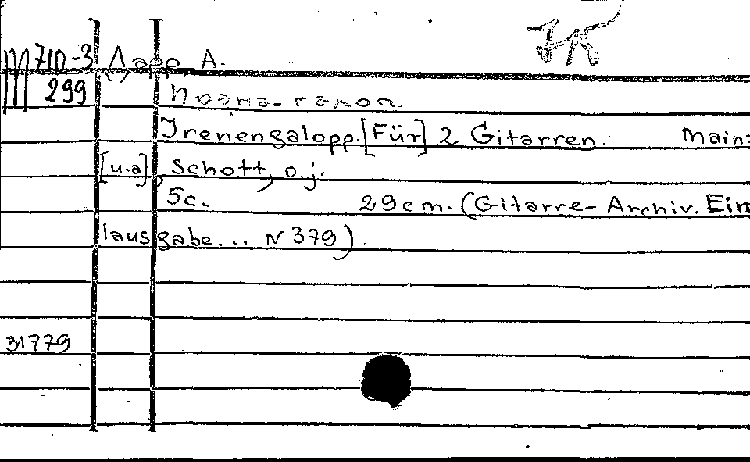 М 710-3 Ларр, А.
299
Irenengalopp. [Für] 2 Gitarren. Mainz
[u.a], Schott, o.j.
5с. 29 cm. (Gitarre-Archiv. Ein
lausgabe... N 379).
31779